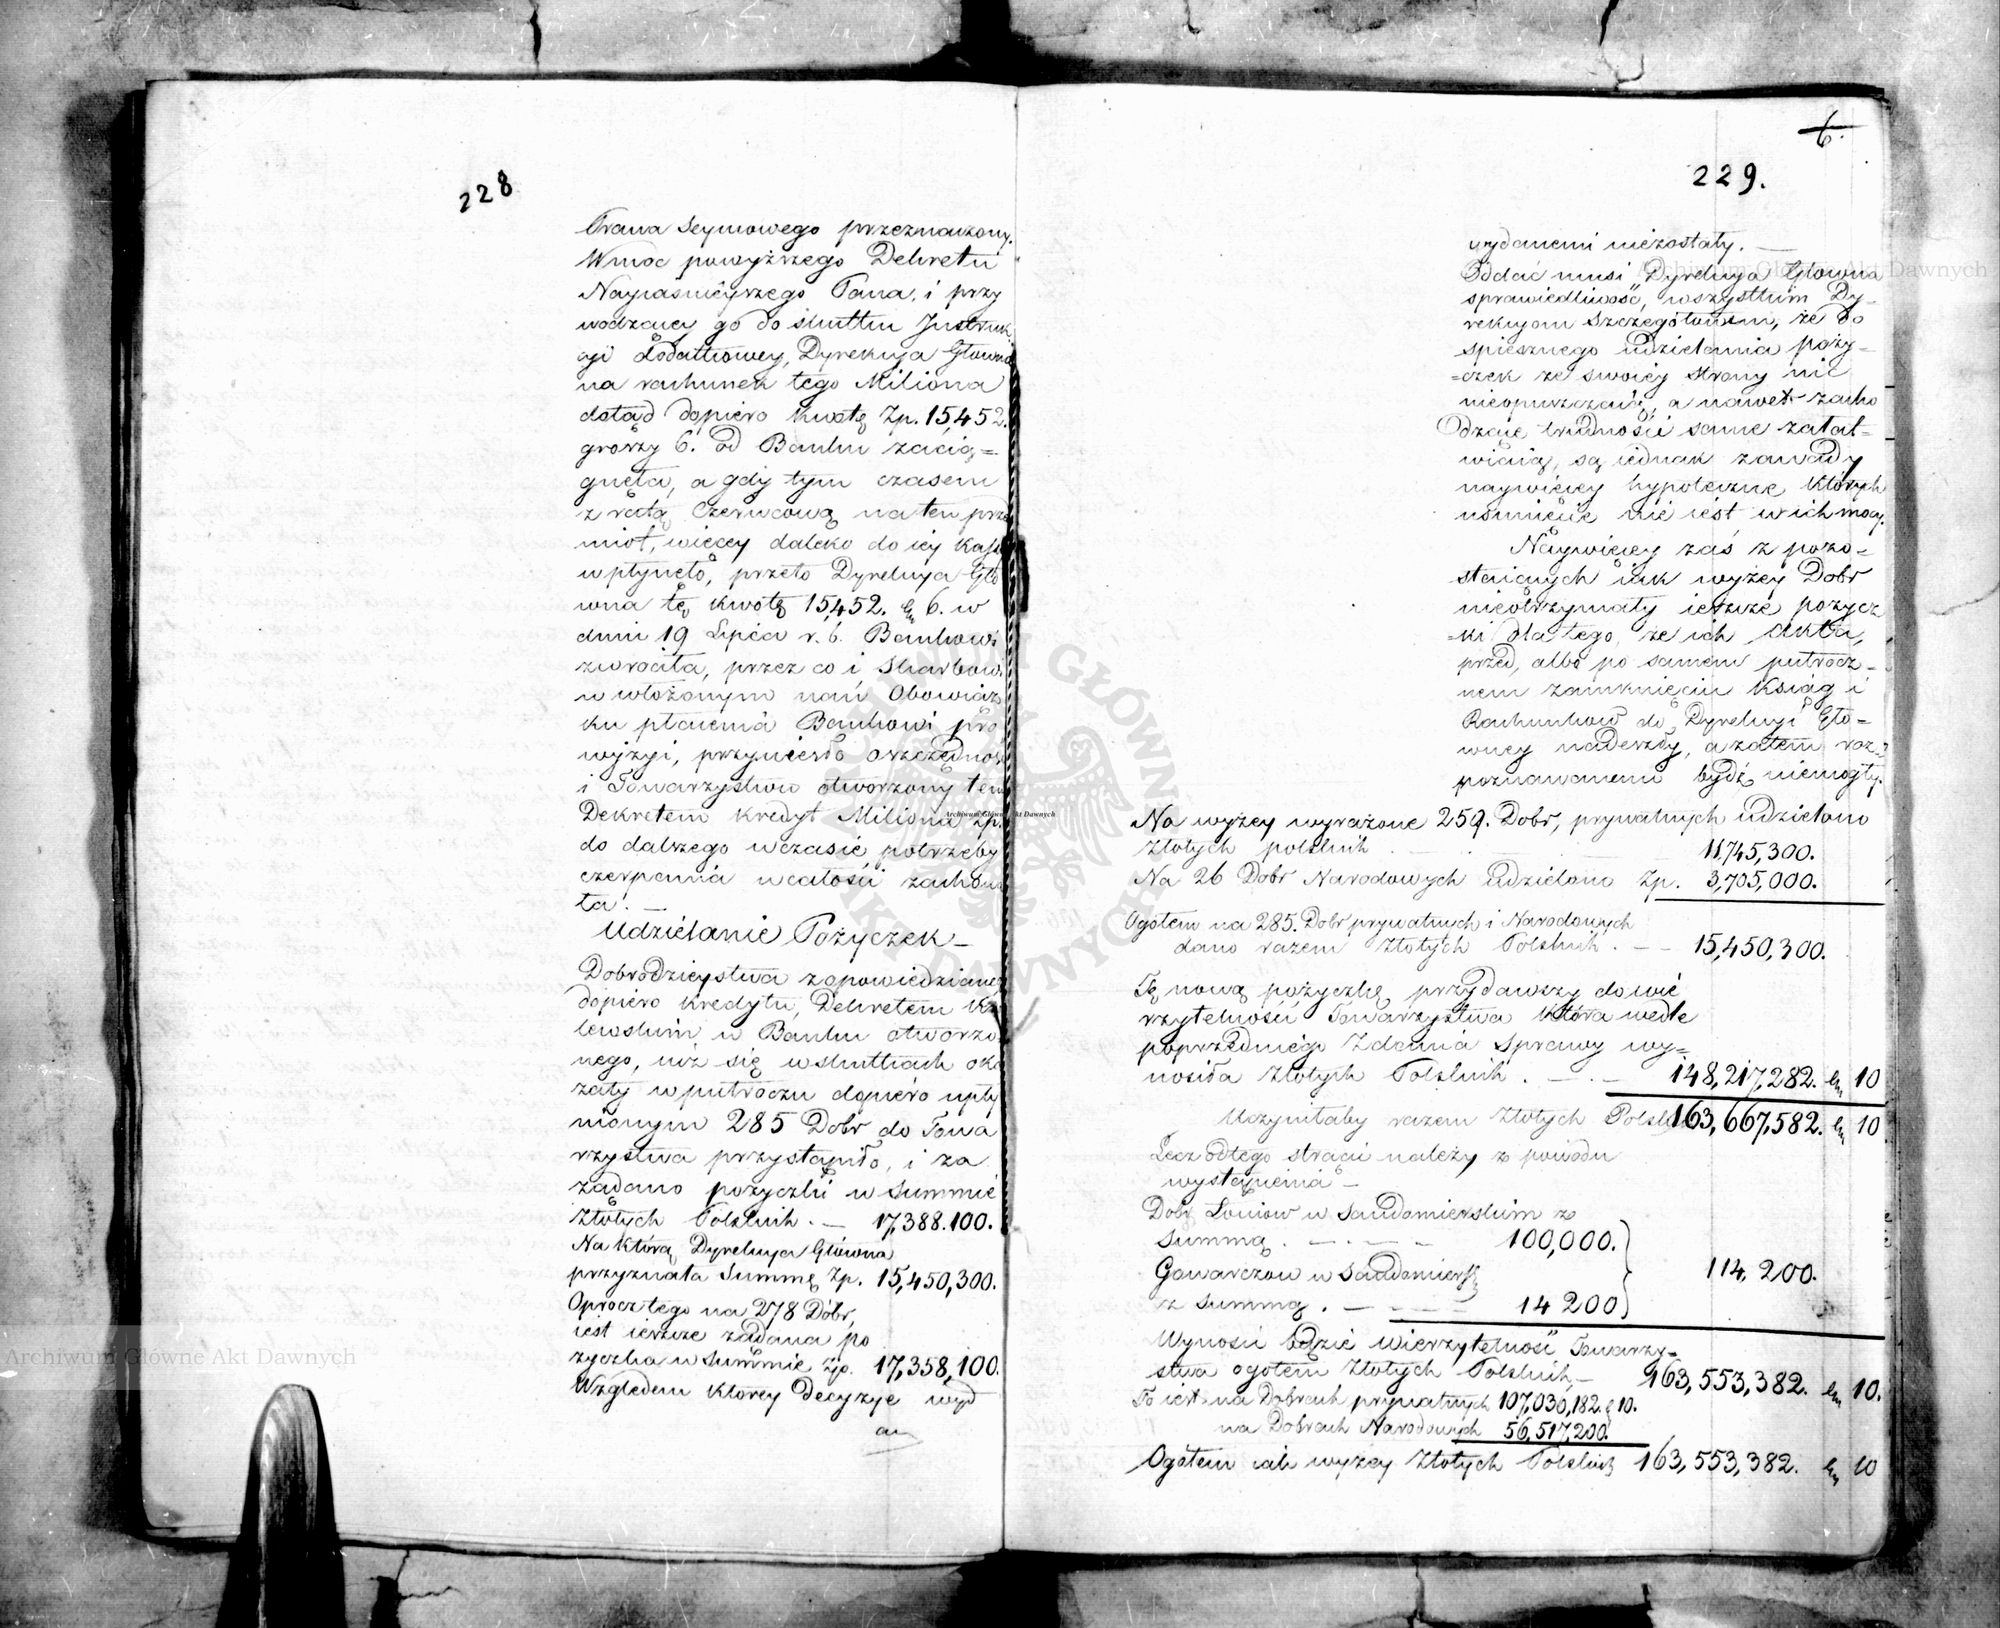 228
Prawa Seymowego przeznaczony.
Wmoc powyższego Dekretu
Nayiaśnieyszego Pana, i przy
wodzącey go do skutku Instruk
cyi dodatkowey, Dyrekcya Główna
na rachunek tego Miliona
dotąd dopiero kwotę Zp. 15,452.
groszy 6. od Banku zacią=
gnęła, a gdy tym czasem
z ratą Czerwcową na ten prze
miot, więcey daleko do iey Kassy
wpłynęło, przeto Dyrekcya Głó
wna tę kwotę 15,452. gr 6. w
dniu 19 Lipca r. b. Bankowi
zwróciła, przez co i Skarbowi
w włożonym nań Obowiąz
ku płacenia Bankowi pro
wizyi, przyniosło oszczędność
i Towarzystwu otworzony tem
Dekretem kredyt Miliona Zp.
do dalszego wczasie potrzeby
czerpania wcałości zachowa
ła. —
Udzielanie Pożyczek —
Dobrodzieystwa zapowiedzianego
dopiero kredytu, Dekretem Kró
lewskim w Banku otworzo
nego, iuż się w skutkach oka
zały w półroczu dopiero upły
nionym 285 Dóbr do Towa
rzystwa przystąpiło, i za
żądano pożyczki w Summie
Złotych Polskich . — 17,388.100.
Na którą Dyrekcya Główna
przyznała Summę Zp. 15,450,300.
Oprócz tego na 278 Dóbr,
iest ieszcze żądana po
życzka w Summie Zp. 17,358,100.
Względem którey Decyzye wyd
an
6.
229.
wydanemi niezostały. —
Oddać musi Dyrekcya Główna
sprawiedliwość, wszystkim Dy=
rekcyom Szczegółowym, że do
spiesznego udzielania poży=
=czek ze swoiey strony nic
nieopuszczaią, a nawet zacho
dzące trudności same załat=
wiaią, są iednak zawady
naywięcey hypoteczne których
usunięcie nie iest w ich mocy.
Naywięcey zaś z pozo=
staiących iak wyżey Dóbr
nieotrzymały ieszcze pożycz
=ki dla tego, że ich Akta,
przed, albo po samem półrocz=
nem zamknięciu Ksiąg i
Rachunków do Dyrekcyi Głó=
wney nadeszły, a zatem roz=
poznawanemi bydź niemogły.
Na wyżey wyrażone 259. Dóbr, prywatnych udzielono
Złotych polskich . — 11,745,300.
Na 26 Dóbr Narodowych udzielono Zp. 3,705,000.
Ogółem na 285. Dobr prywatnych i Narodowych
dano razem Złotych Polskich . — — 15,450,300.
Tę nową pożyczkę przydawszy do wie
rzytelności Towarzystwa która wedle
poprzedniego Zdania Sprawy wy=
nosiła Złotych Polskich . — . — 148,217,282. gr 10
Uczyniłaby razem Złotych Polskich 163,667,582. gr 10
Lecz odtego strącić należy z powodu
wystąpienia —
Dóbr Łoniow w Sandomierskim z
Summą . — . — — 100,000.
Gawarczow w Sandomiersk
z Summą . — — — 14 200
114, 200.
Wynosić będzie wierzytelność Towarzy=
stwa ogółem Złotych Polskich, — 163,553,382. gr 10.
To iest na Dobrach prywatnych 107,036,182. g 10.
na Dobrach Narodowych 56,517,200.
Ogółem iak wyżey Złotych Polskich 163,553,382. gr 10
Archiwum Główne Akt Dawnych
Archiwum Główne Akt Dawnych
Archiwum Główne Akt Dawnych